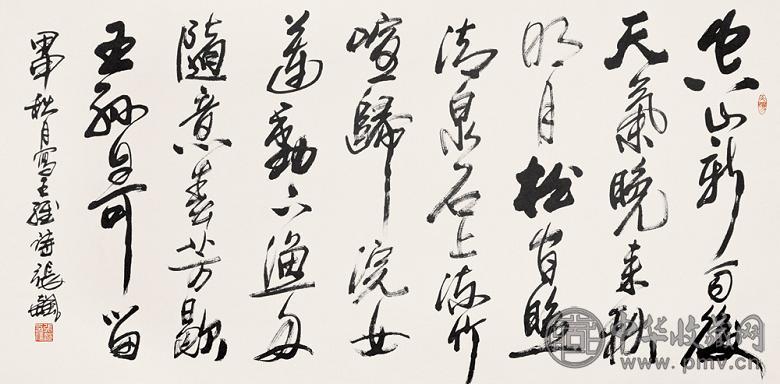 空山新雨後
天氣晚来秋
明月松間照
清泉石上流竹
喧歸浣女
蓮動下漁舟
隨意春芳歇
王孫自可留
甲申秋月寫王維詩張
中华收藏网
www.pmv.cn